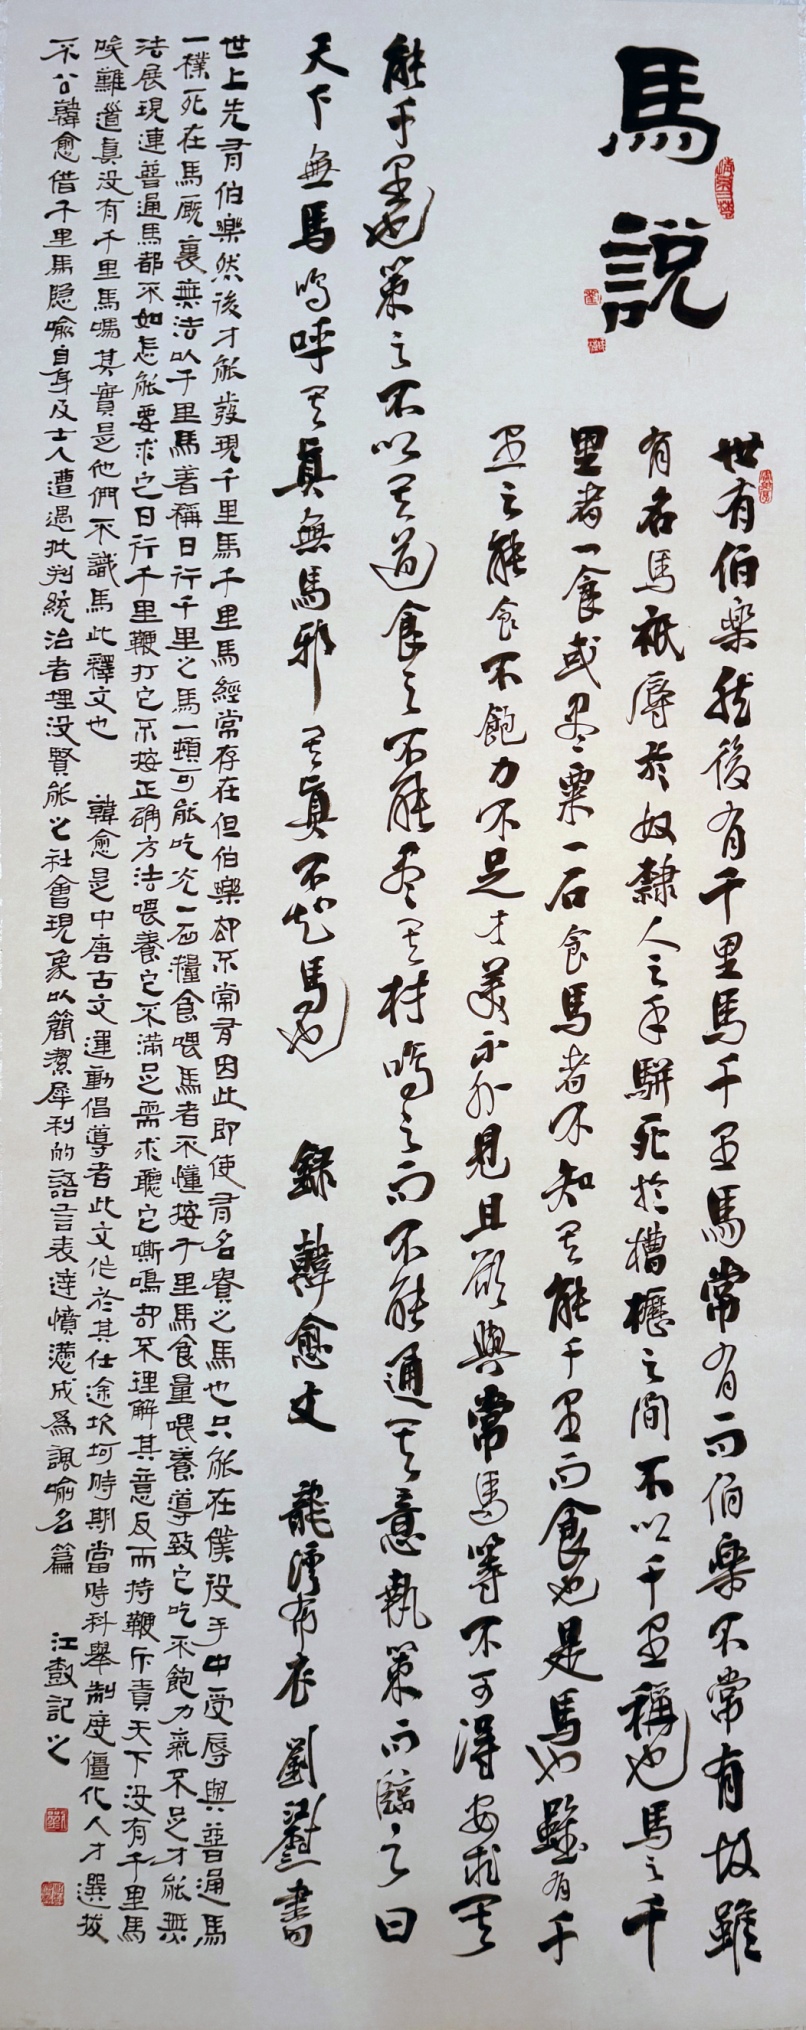 馬說
世有伯樂然後有千里馬千里馬常有而伯樂不常有故雖
有名馬祇辱於奴隸人之手駢死於槽櫪之間不以千里稱也馬之千
里者一食或盡粟一石食馬者不知其能千里而食也是馬也雖有千
里之能食不飽力不足才美不外見且欲與常馬等不可得安求其
能千里也策之不以其道食之不能盡其材鳴之而不能通其意執策而臨之曰
天下無馬嗚呼其真無馬邪其真不知馬也 錄韓愈文 龍灣布衣劉 書
世上先有伯樂然後才能發現千里馬千里馬經常存在但伯樂却不常有因此即使有名貴之馬也只能在僕役手中受辱與普通馬
一樣死在馬厩裏無法以千里馬著稱日行千里之馬一頓可能吃光一石糧食喂馬者不懂按千里馬食量喂養導致它吃不飽力氣不足才能無
法展現連普通馬都不如怎能要求它日行千里鞭打它不按正确方法喂養它不滿足需求聽它嘶鳴却不理解其意反而持鞭斥責天下没有千里馬
唉難道真没有千里馬嗎其實是他們不識馬此釋文也 韓愈是中唐古文運動倡導者此文作於其仕途坎坷時期當時科舉制度僵化人才選拔
不公韓愈借千里馬隐喻自身及士人遭遇批判統治者埋没賢能之社會現象以簡潔犀利的語言表達憤懣成為諷喻名篇 江 記之